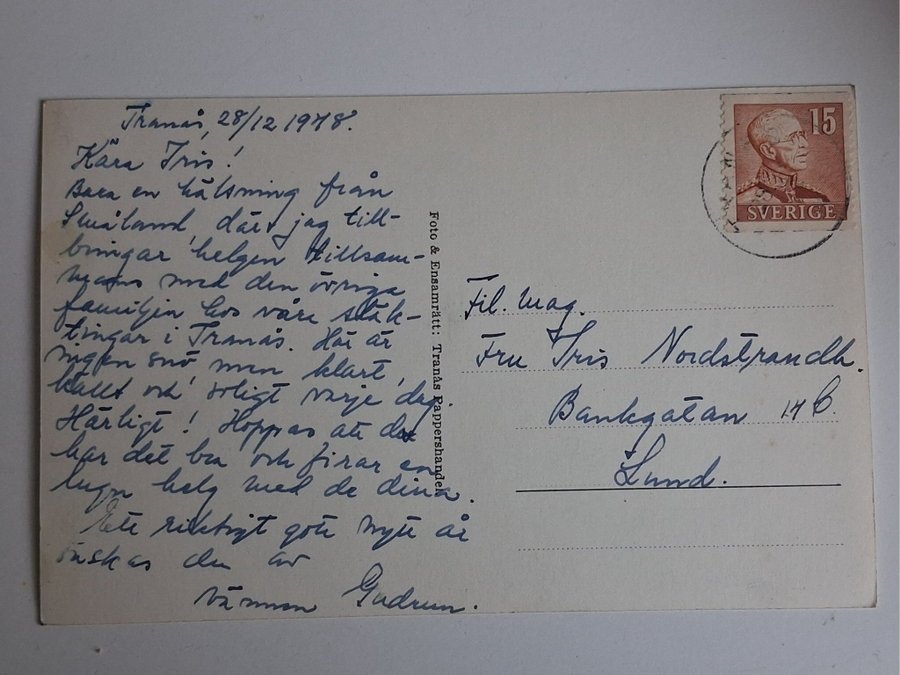 Tranås, 28/12 1948.
Kära Iris!
Bara en hälsning från
Småland där jag till-
bringar helgen tillsam-
mans med den övriga
familjen hos våra släk-
tingar i Tranås. Här är
ingen snö men klart,
kallt och soligt varje dag.
Härligt! Hoppas att du
har det bra och firar en
lugn helg med de dina.
Ett riktigt gott nytt år
önskas du av
vännen Gudrun.
Foto & Ensamrätt: Tranås Pappershandel
15
SVERIGE
Fil. mag.
Fru Iris Nordstrandh.
Bankgatan 14 C.
Lund.